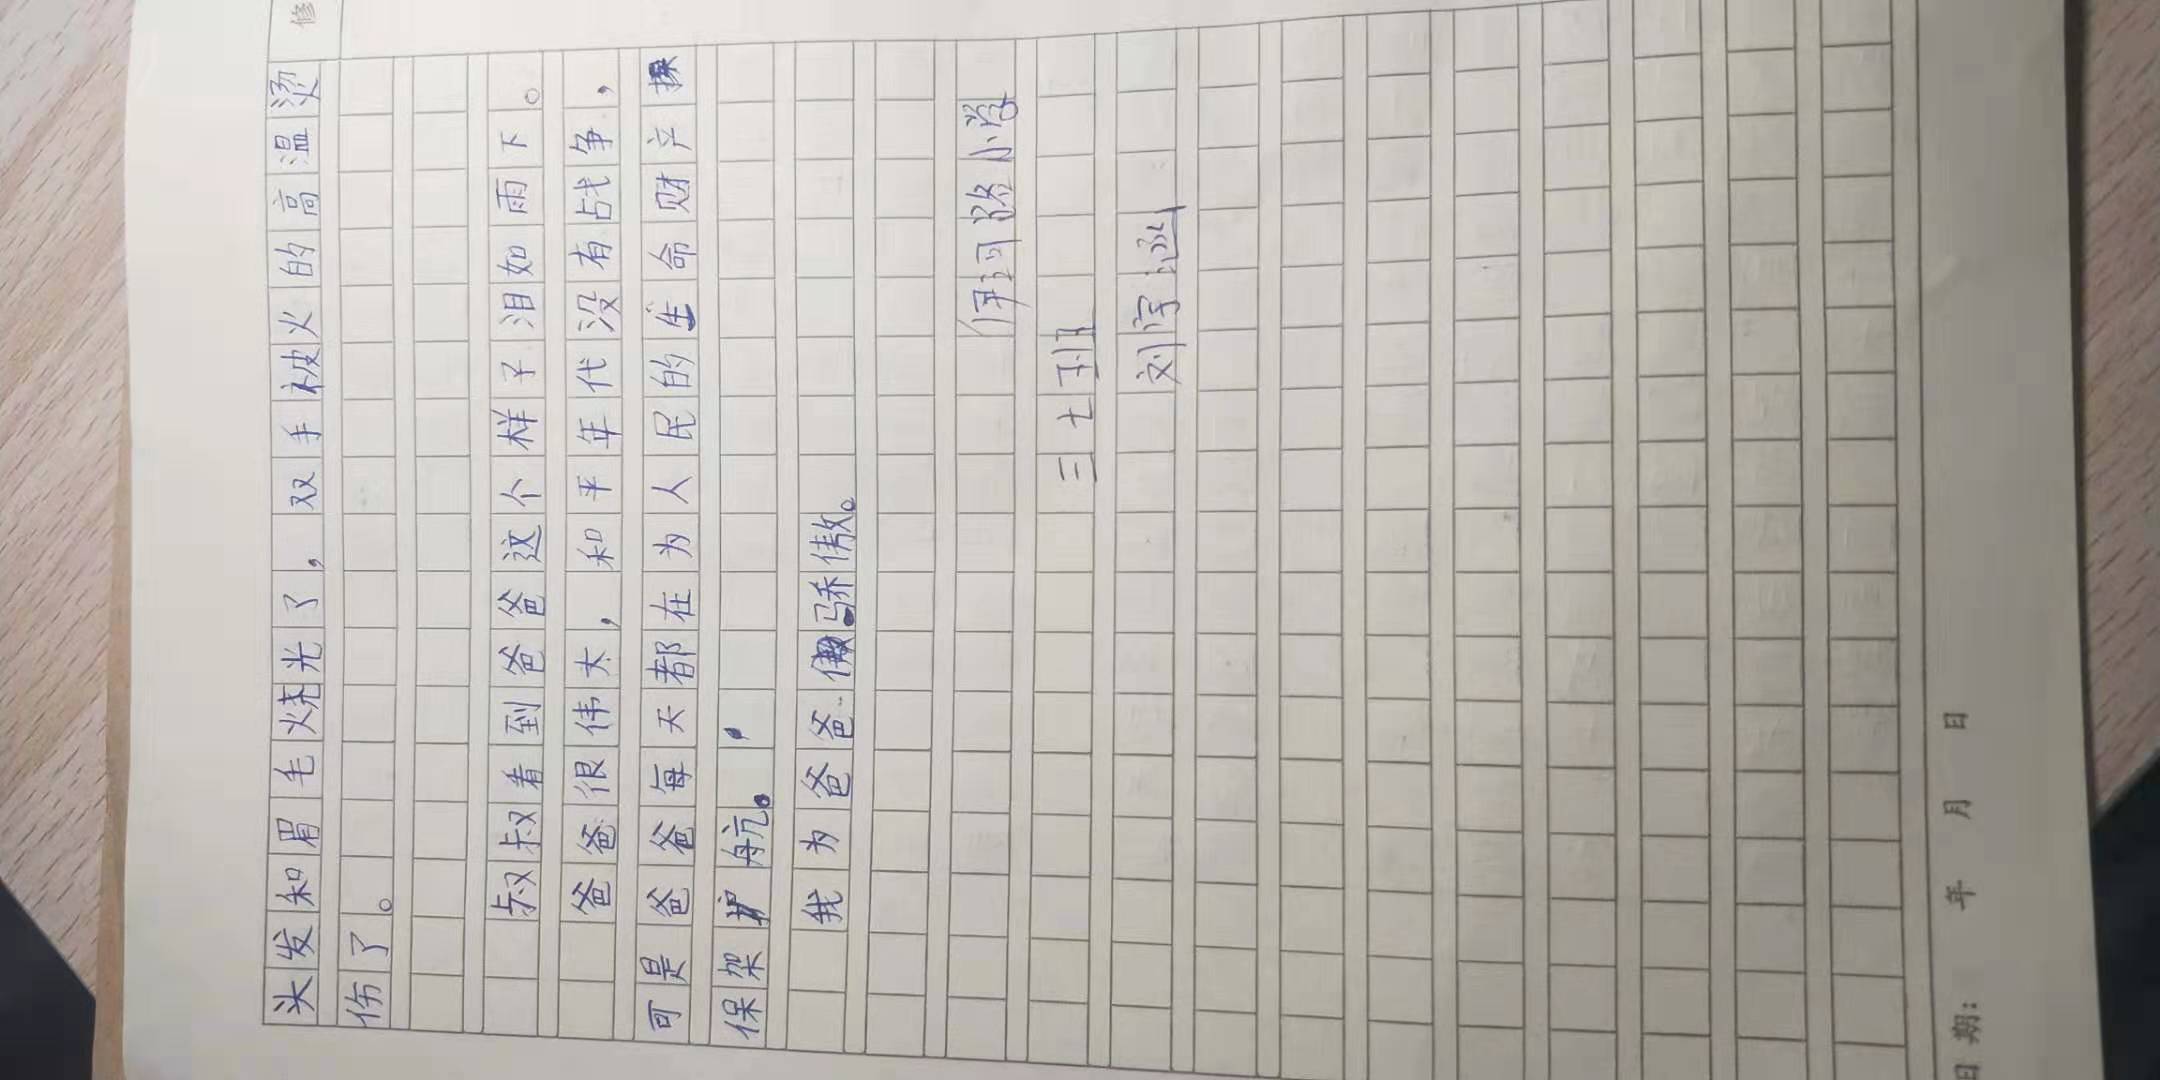 修
头发和眉毛烧光了，双手被火的高温烫
伤了。
叔叔看到爸爸这个样子泪如雨下。
爸爸很伟大，和平年代没有战争，
可是爸爸每天都在为人民的生命财产
保架护航。
我为爸爸骄傲。
伊河路小学
三七班
刘宇涵
日期： 年 月 日